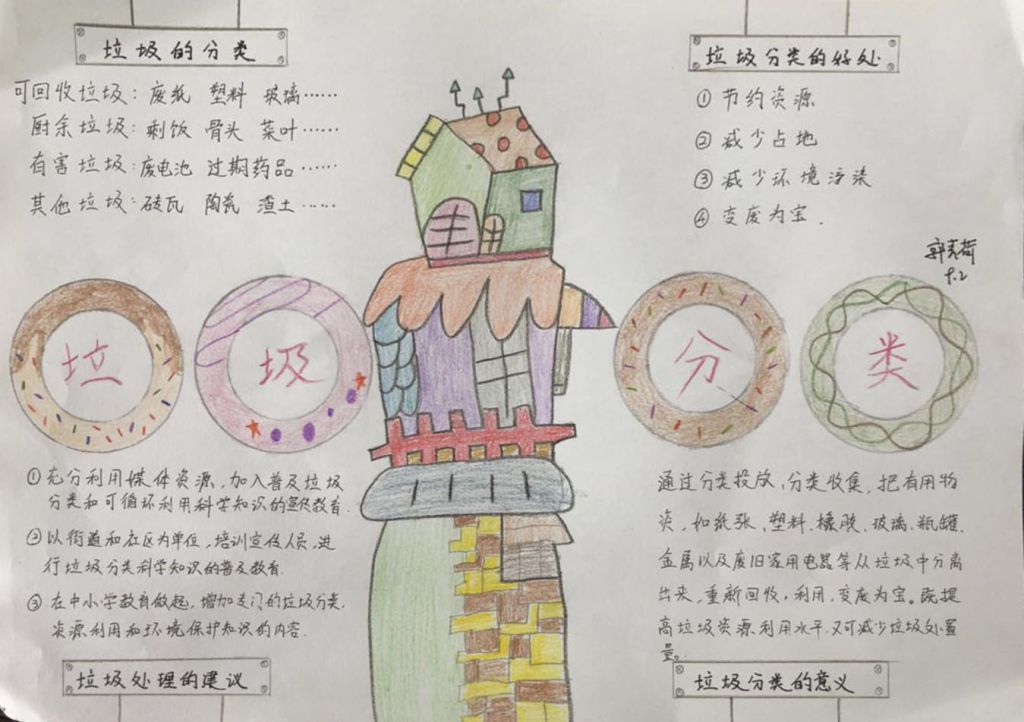 垃圾的分类
可回收垃圾：废纸 塑料 玻璃……
厨余垃圾：剩饭 骨头 菜叶……
有害垃圾：废电池 过期药品……
其他垃圾：砖瓦 陶瓷 渣土……
垃圾分类的好处
①节约资源
②减少占地
③减少环境污染
④变废为宝.
9.2
垃 圾 分 类
①充分利用媒体资源，加入普及垃圾
分类和可循环利用科学知识的宣传教育.
②以街道和社区为单位，培训宣传人员，进
行垃圾分类科学知识的普及教育.
③在中小学教育做起，增加专门的垃圾分类.
资源利用和环境保护知识的内容.
垃圾处理的建议
通过分类投放、分类收集，把有用物
资，如纸张、塑料、橡胶、玻璃、瓶罐、
金属以及废旧家用电器等从垃圾中分离
出来，重新回收，利用，变废为宝。既提
高垃圾资源利用水平，又可减少垃圾处置
量。
垃圾分类的意义